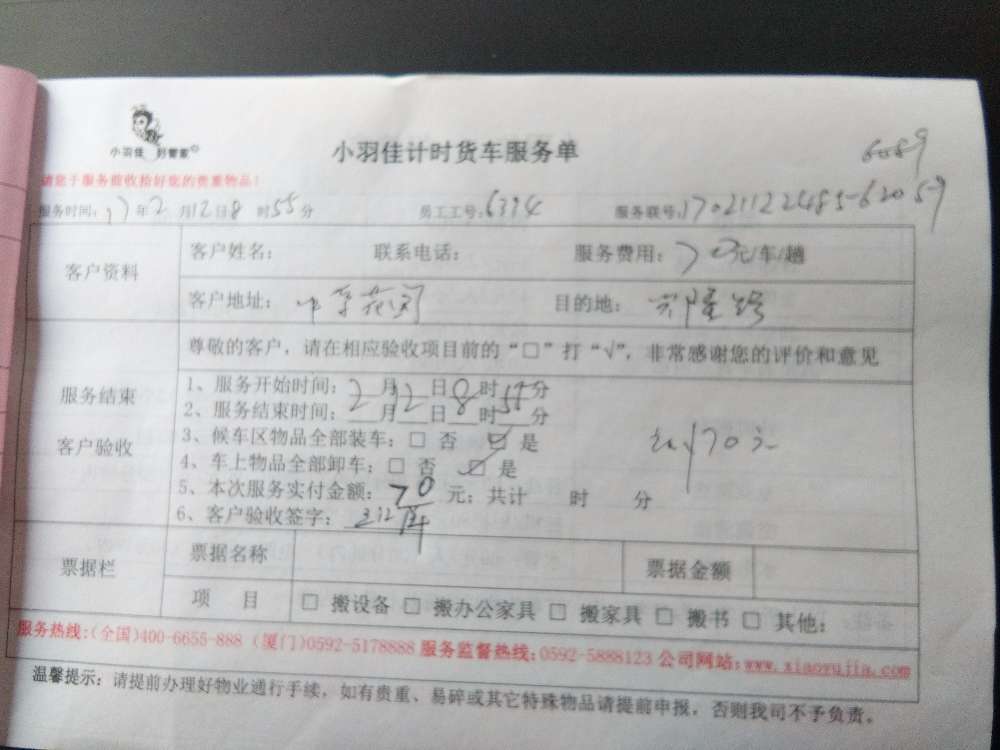 小羽佳 好管家
小羽佳计时货车服务单
6059
请您于服务前收拾好您的贵重物品！
服务时间：17年2月12日8时55分 员工工号：6394 服务联号：
客户资料
客户姓名： 联系电话： 服务费用：70元/车/趟
客户地址： 花园 目的地： 兴隆路
服务结束
客户验收
尊敬的客户，请在相应验收项目前的“□”打“√”，非常感谢您的评价和意见
1、服务开始时间：2月12日8时55分
2、服务结束时间：2月12日8时55分
3、候车区物品全部装车：□ 否 ☑ 是
4、车上物品全部卸车：□ 否 ☑ 是
70元
5、本次服务实付金额：70元；共计 时 分
6、客户验收签字：
票据栏
票据名称 票据金额
项 目 □ 搬设备 □ 搬办公家具 □ 搬家具 □ 搬书 □ 其他：
服务热线：(全国)400-6655-888 (厦门)0592-5178888 服务监督热线：0592-5888123 公司网站：www.xiaoyujia.com
温馨提示：请提前办理好物业通行手续，如有贵重、易碎或其它特殊物品请提前申报，否则我司不予负责。